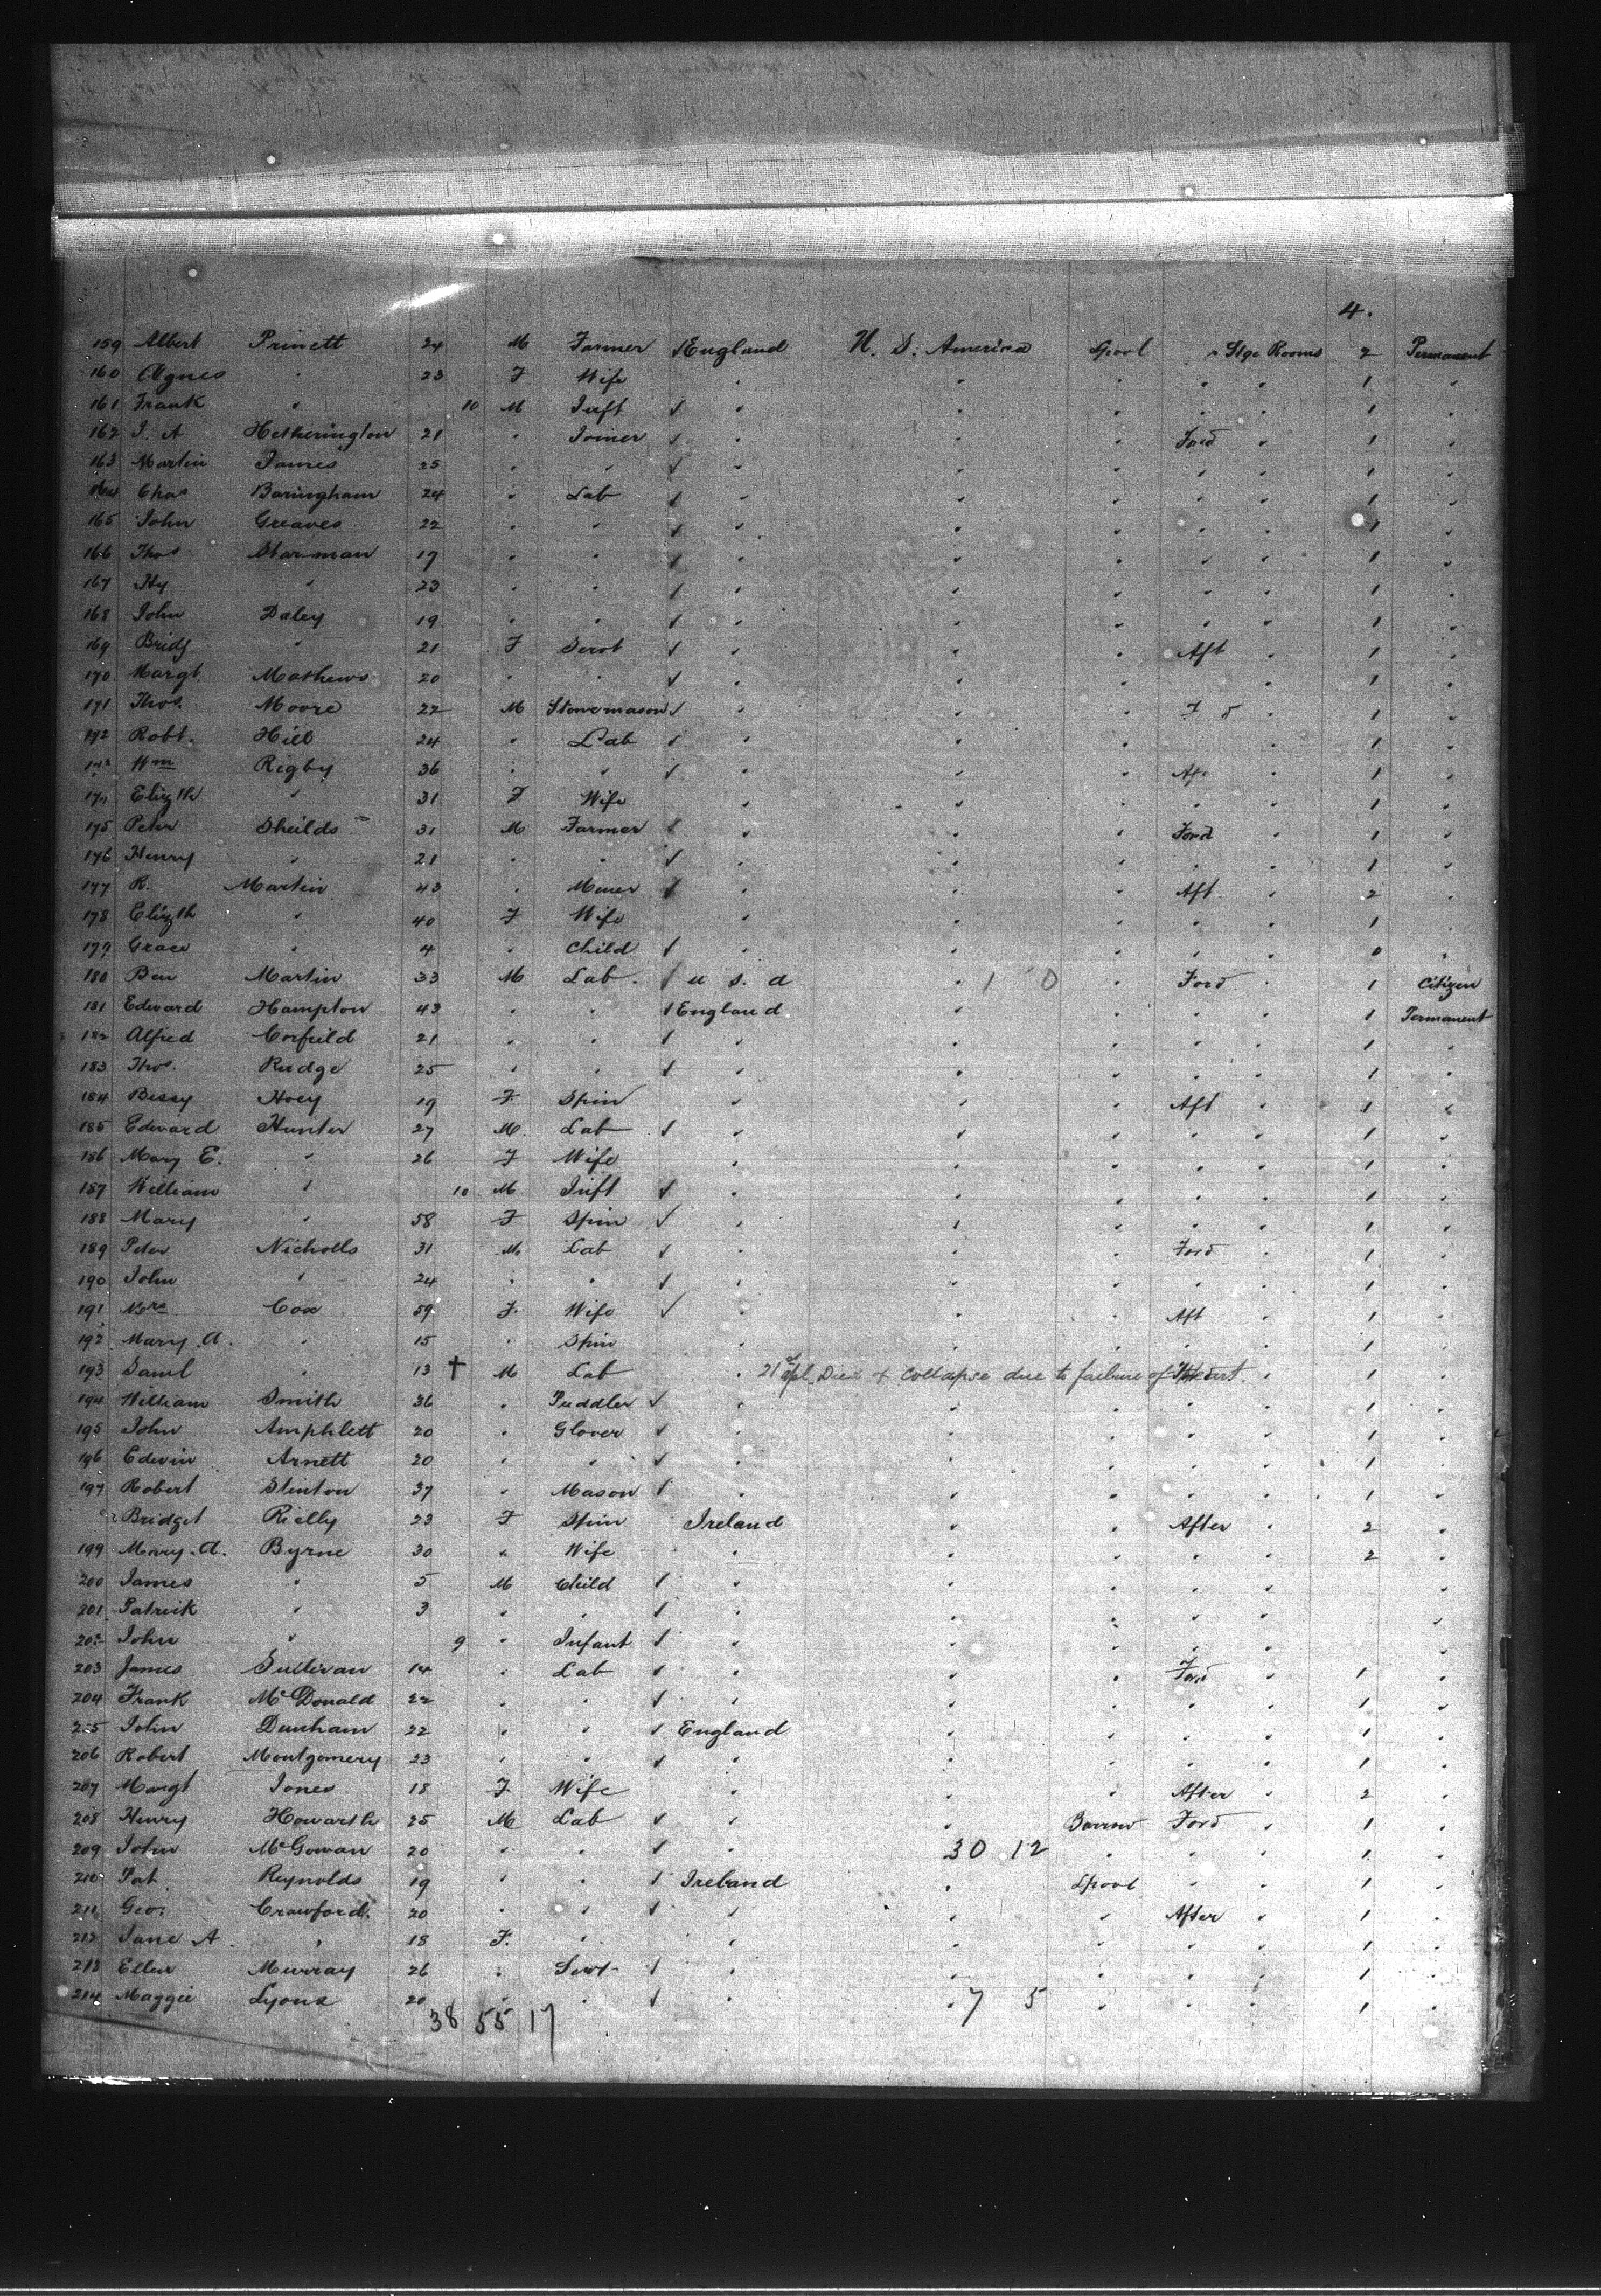 4.
159 Albert Prinett 24 M Farmer England U. S. America Lpool " Stge Rooms 2 Permanent
160 Agnes " 23 F Wife " " " " " 1 "
161 Frank " 10 M Inft " " " " " 1 "
162 J. A Hetherington 21 " Joiner " " " Ford " 1 "
163 Martin James 25 " " " " " " " 1 "
164 Chas Baringham 24 " Lab " " " " " 1 "
165 John Greaves 22 " " " " " " " 1 "
166 Thos Starman 17 " " " " " " " 1 "
167 Hy " 23 " " " " " " " 1 "
168 John Daley 19 " " " " " " " 1 "
169 Bridg " 21 F Servt " " " Aft " 1 "
170 Margt. Mathews 20 " " " " " " " 1 "
171 Thos. Moore 22 M Stonemason " " " F d " 1 "
172 Robt. Hill 24 " Lab " " " " 1 "
Wm Rigby 36 " " " " " Aft " 1 "
Elizth " 31 F Wife " " " " " 1 "
175 Peter Sheilds 31 M Farmer " " " Ford " 1 "
176 Henry " 21 " " " " " " " 1 "
177 R. Martin 43 " Miner " " " Aft " 2 "
178 Elizth " 40 F Wife " " " " " 1
179 Grace " 4 " Child " " " " " 0 "
180 Ben Martin 33 M Lab. U S. A " 1 0 " Ford " 1 Citizen
181 Edward Hampton 43 " " England " " " " 1 Permanent
182 Alfred Corfield 21 " " " " " " " 1 "
183 Thos. Rudge 25 " " " " " " " 1 "
184 Bessy Hoey 19 F Spin " " " Aft " 1 "
185 Edward Hunter 27 M. Lab " " " " " 1 "
186 Mary E. " 26 F Wife " " " " " 1 "
187 William " 10 M Inft " " " " " 1 "
188 Mary " 58 F Spin " " " " " 1 "
189 Peter Nicholls 31 M. Lab " " " Ford " 1 "
190 John " 24 " " " " " " " 1 "
191 Mrs Cox 59 F. Wife " " " Aft " 1 "
192 Mary. A. " 15 " Spin " " " " " 1 "
193 Saml " 13 † M Lab " 21 Apl. Died of Collapse due to failure of Heart. " 1 "
194 William Smith 36 " Puddler " " " " " 1 "
195 John Amphlett 20 " Glover " " " " " 1 "
196 Edwin Arnett 20 " " " " " " " 1 "
197 Robert Stinton 37 " Mason " " " " " 1 "
Bridget Rielly 23 F Spin Ireland " " After " 2 "
199 Mary. A. Byrne 30 " Wife " " " " " 2 "
200 James " 5 M Child " " " " " "
201 Patrick " 3 " " " " " " " "
202 John " 9 " Infant " " " " " "
203 James Sullivan 14 " Lab " " " Ford " 1 "
204 Frank McDonald 22 " " " " " " " 1 "
205 John Dunham 22 " " England " " " " 1 "
206 Robert Montgomery 23 " " " " " " " 1 "
207 Margt Jones 18 F Wife " " " After " 2 "
208 Henry Howarth 25 M Lab " " Barrow Ford " 1 "
209 John McGowan 20 " " " 30 12 " " " 1 "
210 Pat Reynolds 19 " " Ireland " Lpool " " 1 "
211 Geo: Crawford. 20 " " " " " After " 1 "
212 Jane A " 18 F. " " " " " " 1 "
213 Ellen Murray 26 " Servt " " " " " 1 "
214 Maggie Lyons 20 " " " " 7 5 " " " 1 "
38 55 17